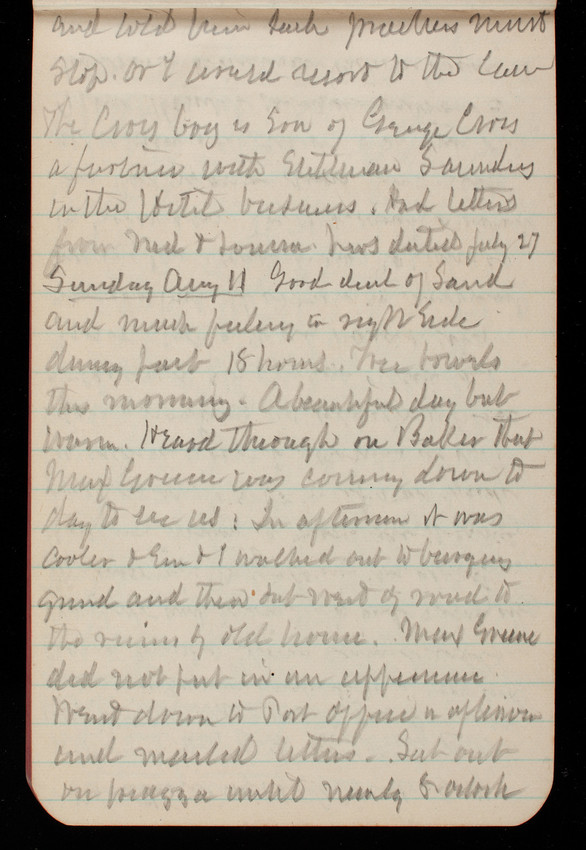 and told him such practices must
stop. or I would resort to the law
The Cross boy is son of George Cross
a partner with Saunders
in the Hotel business. Had letters
from Ned & Louisa dated July 27
Sunday Aug 11 Good deal of Sand
and much feeling in right side
during past 18 hours. Free bowels
this morning. A beautiful day but
warm. Heard through on Baker that
Max Greene was coming down to
day to see us: In afternoon it was
cooler & Em & I walked out to burying
grund and then out west of road to
the ruins of old house. Max Greene
did not put in an appearance
Went down to Post office in afternoon
and mailed letters. Sat out
on piazza until nearly 8 oclock